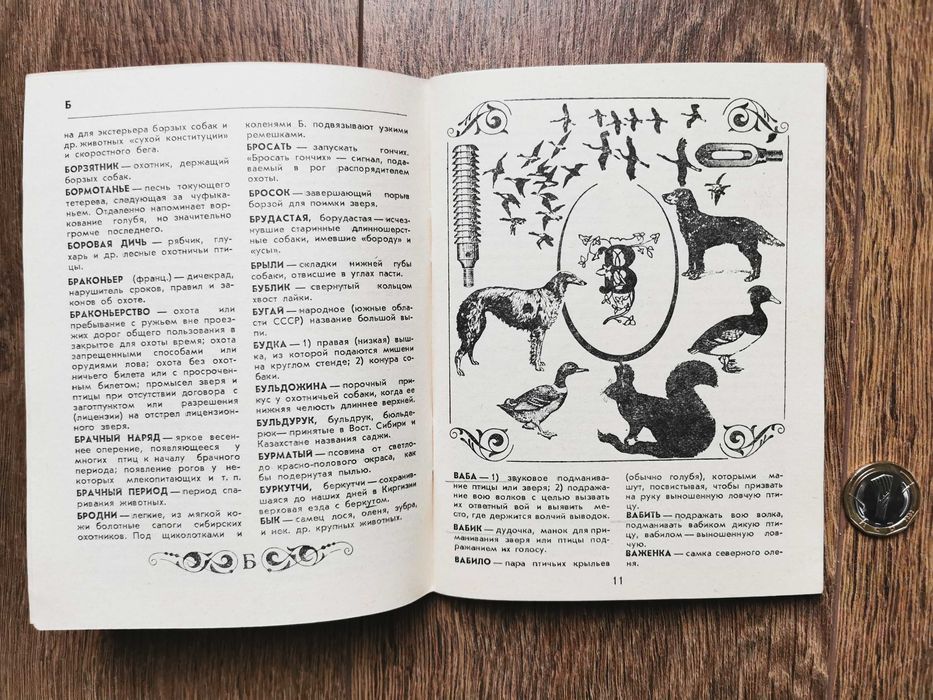 Б
на для экстерьера борзых собак и
др. животных «сухой конституции»
и скоростного бега.
БОРЗЯТНИК — охотник, держащий
борзых собак.
БОРМОТАНЬЕ — песнь токующего
тетерева, следующая за чуфыка-
ньем. Отдаленно напоминает вор-
кование голубя, но значительно
громче последнего.
БОРОВАЯ ДИЧЬ — рябчик, глу-
харь и др. лесные охотничьи пти-
цы.
БРАКОНЬЕР (франц.) — дичекрад,
нарушитель сроков, правил и за-
конов об охоте.
БРАКОНЬЕРСТВО — охота или
пребывание с ружьем вне проез-
жих дорог общего пользования в
закрытое для охоты время; охота
запрещенными способами или
орудиями лова; охота без охот-
ничьего билета или с просрочен-
ным билетом; промысел зверя и
птицы при отсутствии договора с
заготпунктом или разрешения
(лицензии) на отстрел лицензион-
ного зверя.
БРАЧНЫЙ НАРЯД — яркое весен-
нее оперение, появляющееся у
многих птиц к началу брачного
периода; появление рогов у не-
которых млекопитающих и т. п.
БРАЧНЫЙ ПЕРИОД — период спа-
ривания животных.
БРОДНИ — легкие, из мягкой ко-
жи болотные сапоги сибирских
охотников. Под щиколотками и
коленями Б. подвязывают узкими
ремешками.
БРОСАТЬ — запускать гончих.
«Бросать гончих» — сигнал, пода-
ваемый в рог распорядителем
охоты.
БРОСОК — завершающий порыв
борзой для поимки зверя.
БРУДАСТАЯ, борудастая — исчез-
нувшие старинные длинношерст-
ные собаки, имевшие «бороду» и
«усы».
БРЫЛИ — складки нижней губы
собаки, отвисшие в углах пасти.
БУБЛИК — свернутый кольцом
хвост лайки.
БУГАЙ — народное (южные обла-
сти СССР) название большой вы-
пи.
БУДКА — 1) правая (низкая) выш-
ка, из которой подаются мишени
на круглом стенде; 2) конура со-
баки.
БУЛЬДОЖИНА — порочный при-
кус у охотничьей собаки, когда ее
нижняя челюсть длиннее верхней.
БУЛЬДУРУК, бульдрук, бюльде-
рюк — принятые в Вост. Сибири и
Казахстане названия саджи.
БУРМАТЫЙ — псовина от светло-
до красно-полового окраса, как
бы подернутая пылью.
БУРКУТЧИ, беркутчи — сохранив-
шаяся до наших дней в Киргизии
верховая езда с беркутом.
БЫК — самец лося, оленя, зубра,
и нек. др. крупных животных.
Б
В
ВАБА — 1) звуковое подманива-
ние птицы или зверя; 2) подража-
ние вою волков с целью вызвать
их ответный вой и выявить ме-
сто, где держится волчий выводок.
ВАБИК — дудочка, манок для при-
манивания зверя или птицы под-
ражанием их голосу.
ВАБИЛО — пара птичьих крыльев
(обычно голубя), которыми ма-
шут, посвистывая, чтобы призвать
на руку выношенную ловчую пти-
цу.
ВАБИТЬ — подражать вою волка,
подманивать вабиком дикую пти-
цу, вабилом — выношенную лов-
чую.
ВАЖЕНКА — самка северного оле-
ня.
11